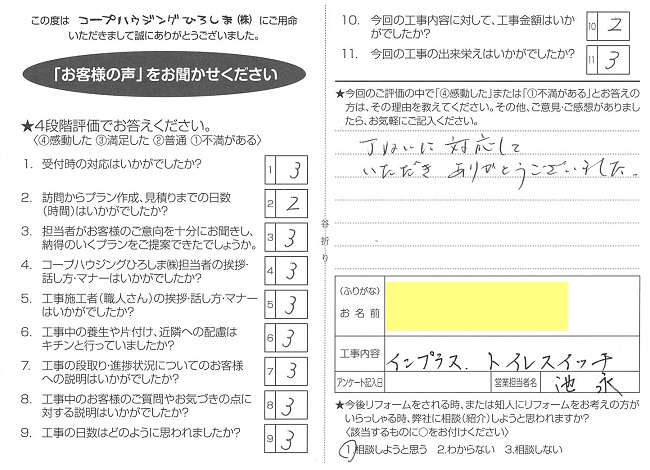 この度は コープハウジングひろしま(株) にご用命
いただきまして誠にありがとうございました。
「お客様の声」をお聞かせください
★4段階評価でお答えください。
〈④感動した ③満足した ②普通 ①不満がある〉
1. 受付時の対応はいかがでしたか?
1 3
2. 訪問からプラン作成、見積りまでの日数
(時間)はいかがでしたか?
2 2
3. 担当者がお客様のご意向を十分にお聞きし、
納得のいくプランをご提案できたでしょうか。
3 3
4. コープハウジングひろしま㈱担当者の挨拶・
話し方・マナーはいかがでしたか?
4 3
5. 工事施工者(職人さん)の挨拶・話し方・マナー
はいかがでしたか?
5 3
6. 工事中の養生や片付け、近隣への配慮は
キチンと行っていましたか?
6 3
7. 工事の段取り・進捗状況についてのお客様
への説明はいかがでしたか?
7 3
8. 工事中のお客様のご質問やお気づきの点に
対する説明はいかがでしたか?
8 3
9. 工事の日数はどのように思われましたか?
9 3
谷折り
10. 今回の工事内容に対して、工事金額はいか
がでしたか?
10 2
11. 今回の工事の出来栄えはいかがでしたか?
11 3
★今回のご評価の中で「④感動した」または「①不満がある」とお答え
の方は、その理由を教えてください。その他、ご意見・ご感想がありまし
たら、お気軽にご記入ください。
丁ねいに 対応して
いただき ありがとうございました。
〈ふりがな〉
お名前
工事内容
インプラス. トイレスイッチ
アンケート記入日
営業担当者名
池永
★今後リフォームをされる時、または知人にリフォームをお考えの方が
いらっしゃる時、弊社に相談(紹介)しようと思われますか?
〈該当するものに○をお付けください〉
1.相談しようと思う 2.わからない 3.相談しない